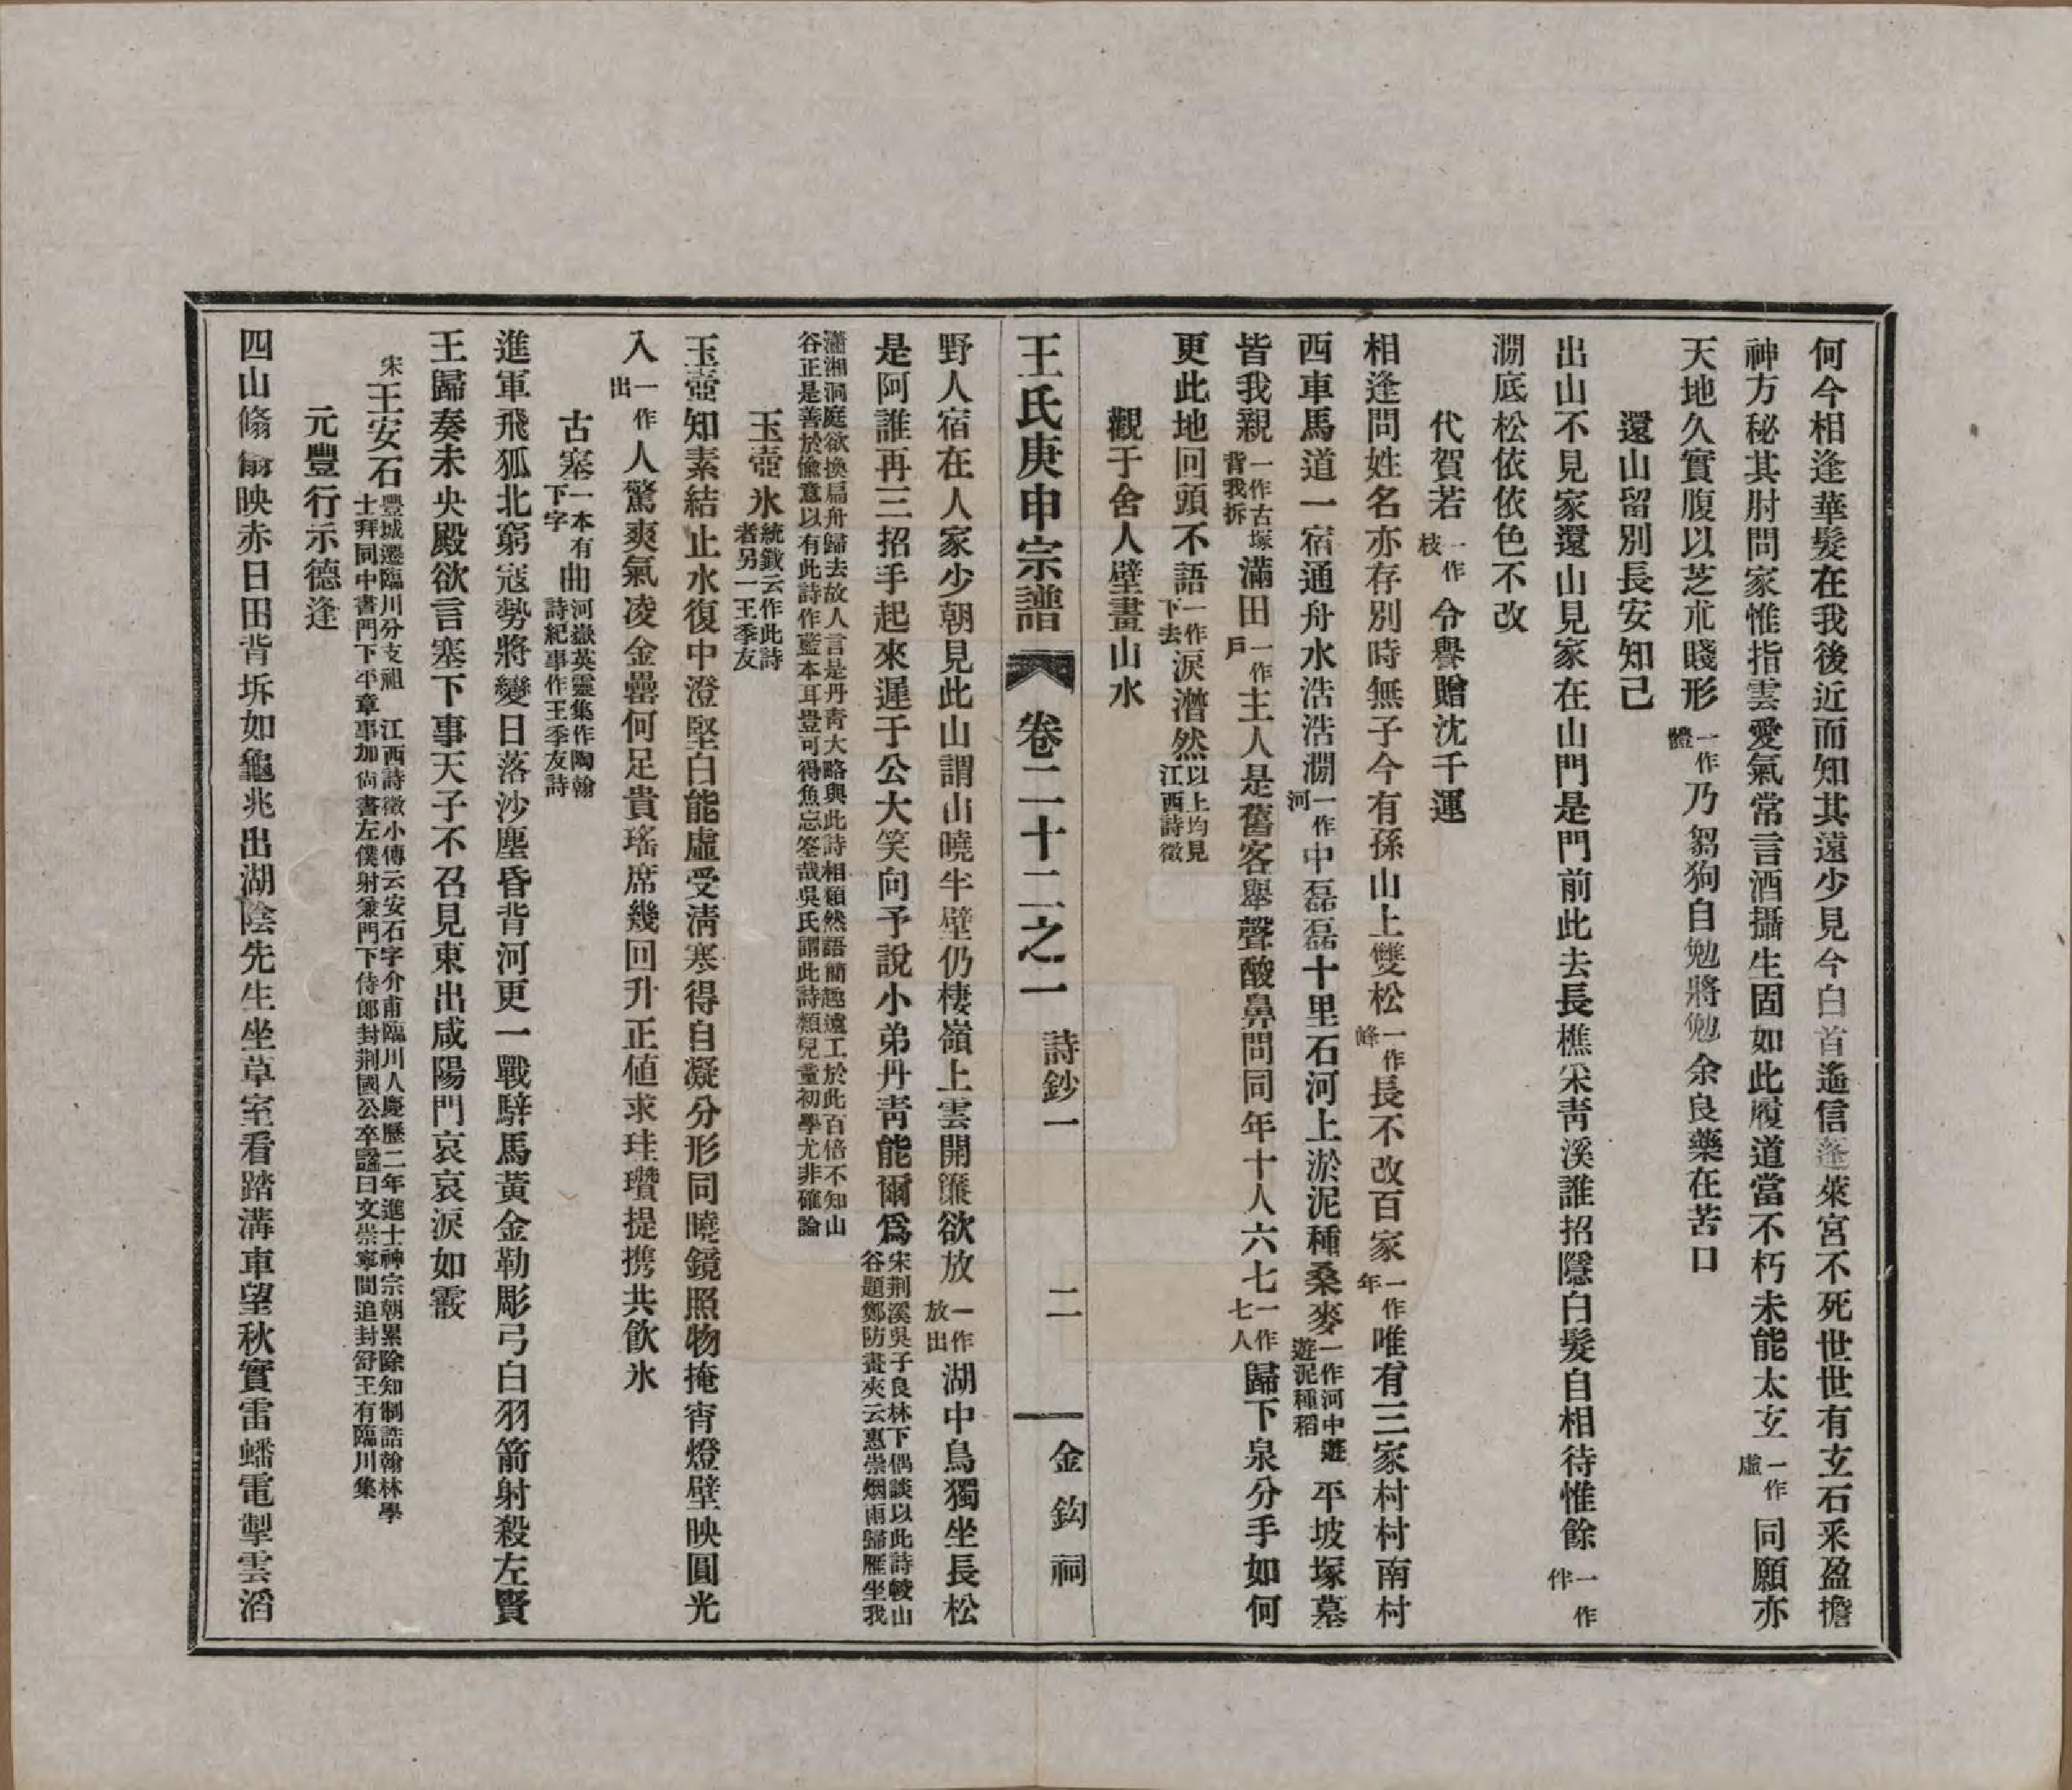 何今相逢華髮在我後近而知其遠少見今白首遙信蓬萊宮不死世世有玄石采盈擔
神方秘其肘問家惟指雲愛氣常言酒攝生固如此履道當不朽未能太玄一作虛同願亦
天地久實腹以芝朮賤形一作體乃芻狗自勉將勉余良藥在苦口
還山留別長安知己
出山不見家還山見家在山門是門前此去長樵采青溪誰招隱白髮自相待惟餘一作伴
澗底松依依色不改
代賀若一作枝令譽贈沈千運
相逢問姓名亦存別時無子今有孫山上雙松一作峰長不改百家一作年唯有三家村村南村
西車馬道一宿通舟水浩浩澗一作河中磊磊十里石河上淤泥種桑麥一作河中遊遊泥種稻平坡塚墓
皆我親一作古塚背我拆滿田一作戶主人是舊客舉聲酸鼻問同年十人六七一作七人歸下泉分手如何
更此地回頭不語一作下去淚潸然以上均見江西詩徵
觀于舍人壁畫山水
王氏庚申宗譜 卷二十二之一 詩鈔一 二 金鈎祠
野人宿在人家少朝見此山謂山曉半壁仍棲嶺上雲開簾欲放一作放出湖中鳥獨坐長松
是阿誰再三招手起來遲于公大笑向予說小弟丹青能爾為宋荊溪吳子良林下偶談以此詩較山谷題鄭防畫夾云惠崇烟雨歸雁坐我
瀟湘洞庭欲換扁舟歸去故人言是丹青大略與此詩相類然語簡趣遠工於此百倍不知山谷正是善於偷意以有此詩作藍本耳豈可得魚忘筌哉吳氏謂此詩類兒童初學尤非確論
玉壺氷統籤云作此詩者另一王季友
玉壺知素結止水復中澄堅白能虛受清寒得自凝分形同曉鏡照物掩宵燈壁映圓光
入一作出人驚爽氣凌金罍何足貴瑤席幾回升正値求珪瓚提携共飲氷
古塞一本有下字曲河嶽英靈集作陶翰詩紀事作王季友詩
進軍飛狐北窮寇勢將變日落沙塵昏背河更一戰騂馬黃金勒彫弓白羽箭射殺左賢
王歸奏未央殿欲言塞下事天子不召見東出咸陽門哀哀淚如霰
宋王安石豐城遷臨川分支祖 江西詩徵小傳云安石字介甫臨川人慶歷二年進士神宗朝累除知制誥翰林學士拜同中書門下平章事加尙書左僕射兼門下侍郎封荊國公卒諡曰文崇寧間追封舒王有臨川集
元豐行示德逢
四山翛翛映赤日田背坼如龜兆出湖陰先生坐草室看踏溝車望秋實雷蟠電掣雲滔